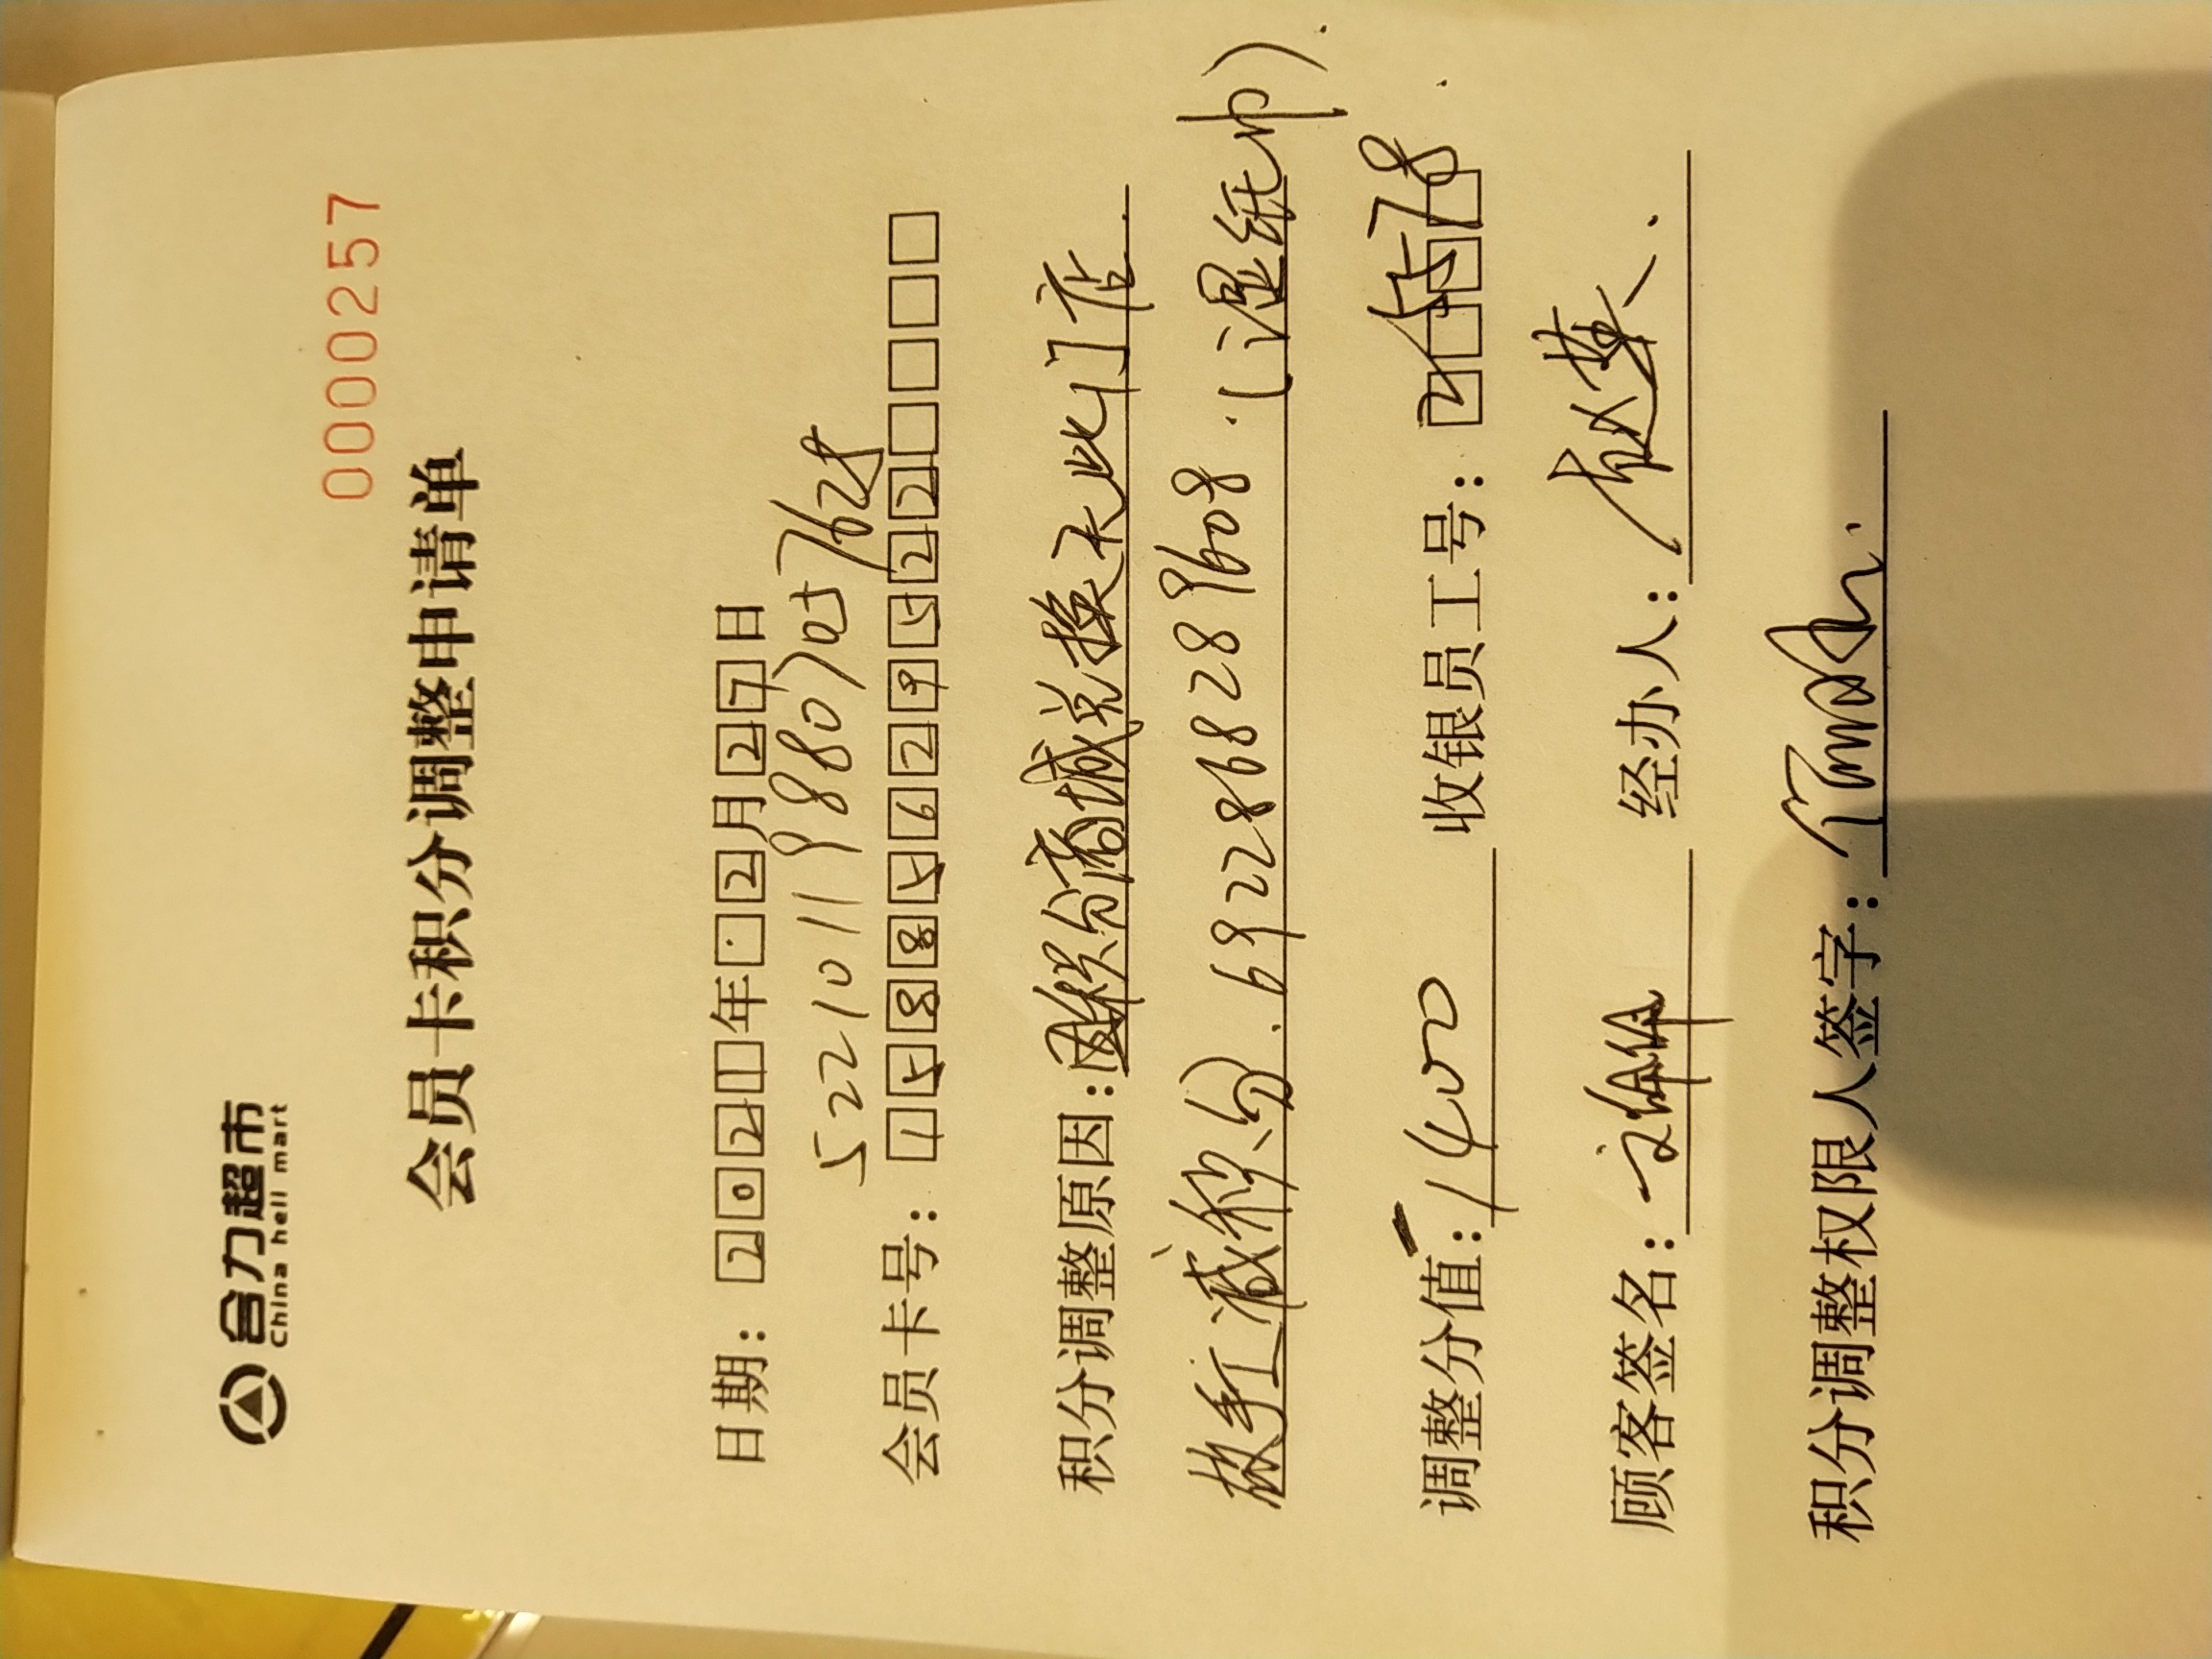 合力超市
China hell mart
0000257
会员卡积分调整申请单
日期：2021年·2月27日
522101198807057628
会员卡号：15885629522
积分调整原因：因积分商城兑换无此门店.
故手工减积分.6922868289608.(湿纸巾).
调整分值：-1400 收银员工号：24578.
顾客签名： 经办人：赵
积分调整权限人签字：